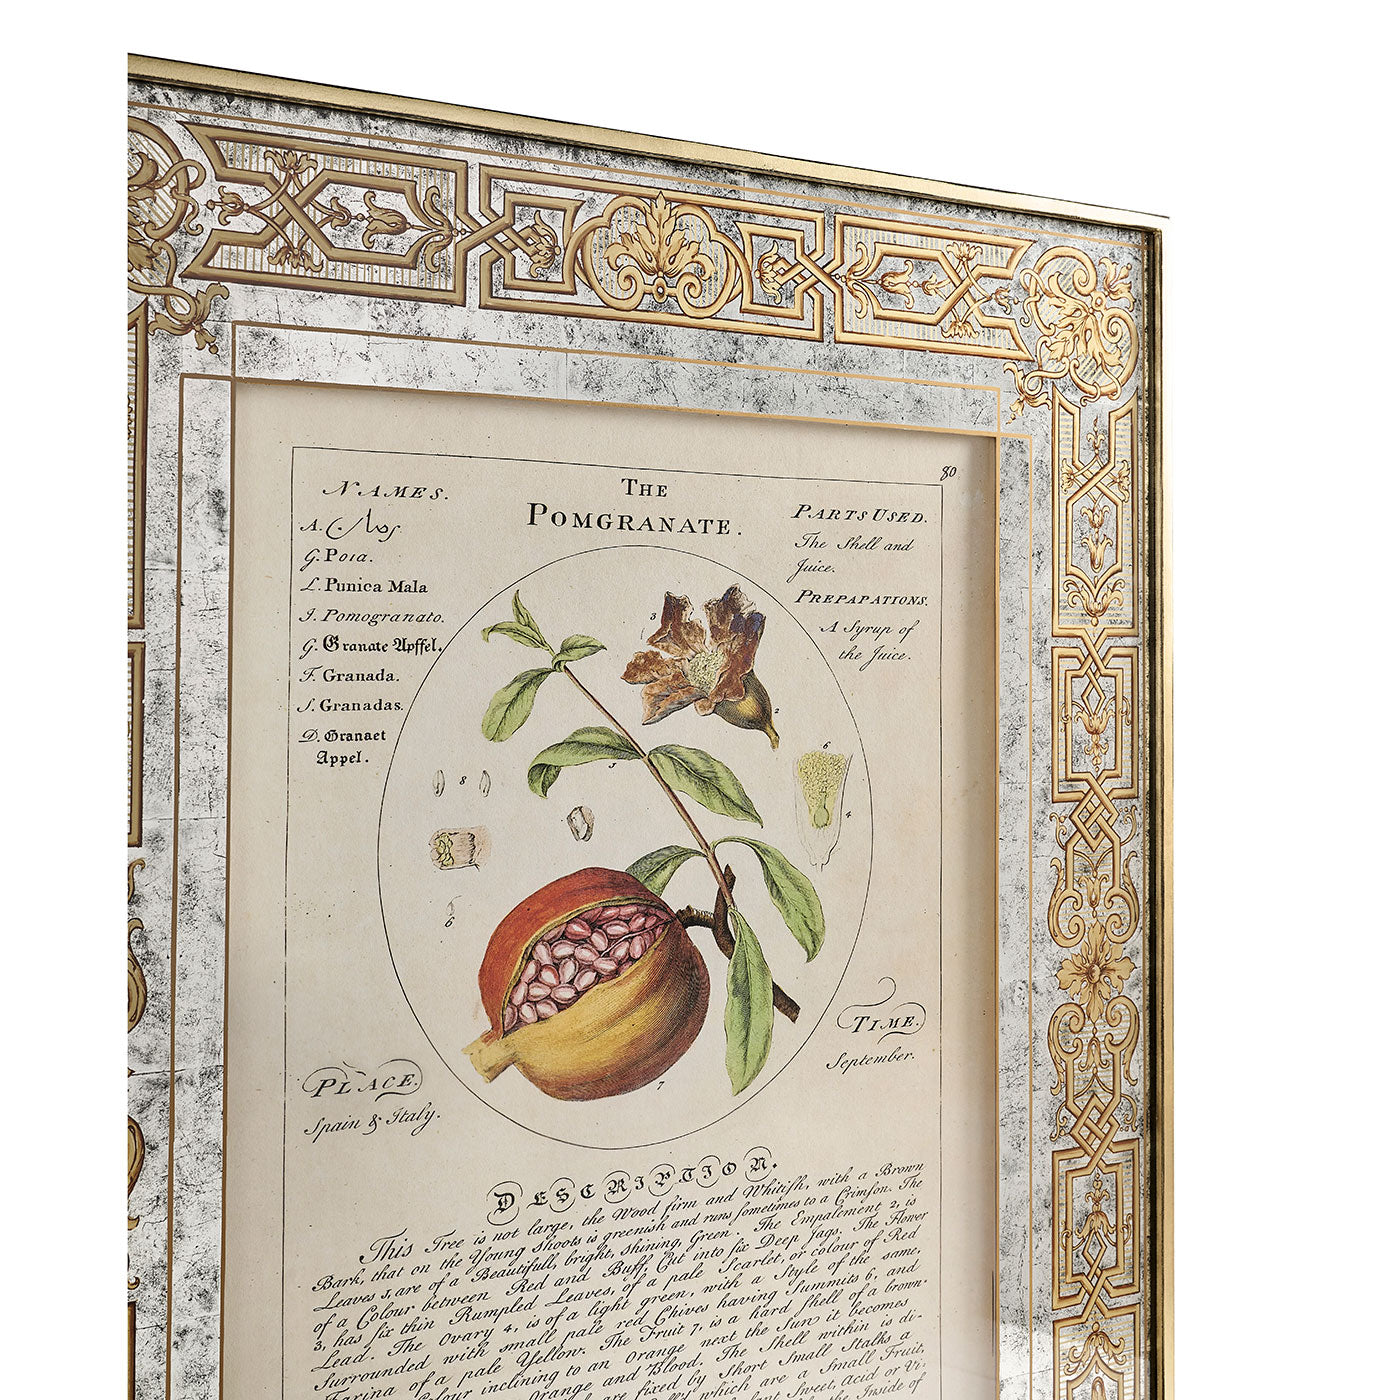 80
THE
POMGRANATE.
NAMES.
A.
G. Poia.
L. Punica Mala
I. Pomogranato.
G. Granate Apffel.
F. Granada.
S. Granadas.
D. Granaet
Appel.
PARTS USED.
The Shell and
Juice.
PREPAPATIONS.
A Syrup of
the Juice.
3
2
5
6
4
8
6
7
PLACE.
Spain & Italy.
TIME.
September.
DESCRIPTION.
This Tree is not large, the Wood firm and Whitish, with a Brown
Bark, that on the Young Shoots is greenish and runs sometimes to a Crimson. The
Leaves 5, are of a Beautifull, bright, shining, Green. The Empalement 2, is
of a Colour between Red and Buff, Cut into six Deep Jags. The Flower
3, has six thin Rumpled Leaves, of a pale Scarlet, or colour of Red
Lead. The Ovary 4, is of a light green, with a Style of the same,
Surrounded with small pale red Chives having Summits 6, and
Farina of a pale Yellow. The Fruit 7, is a hard shell of a brown-
Colour inclining to an Orange next the Sun it becomes
Orange and Blood. The Shell within is di-
are fixed by short Small Stalks a
which are a Small Fruit,
Sweet, Acid or Vi-
the Inside of